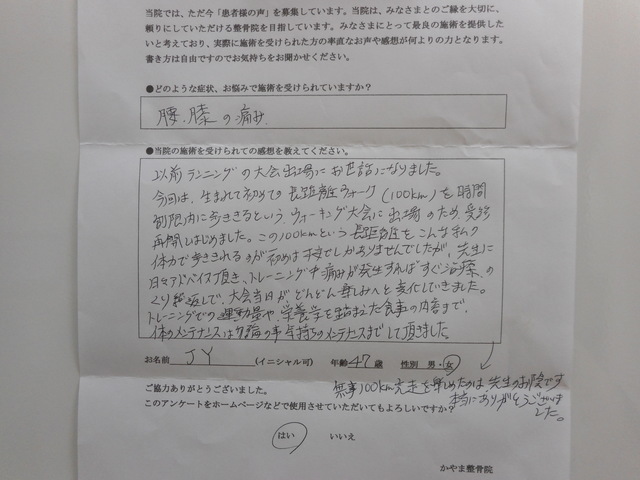 当院では、ただ今「患者様の声」を募集しています。当院は、みなさまとのご縁を大切に、
頼りにしていただける整骨院を目指しています。みなさまにとって最良の施術を提供した
いと考えており、実際に施術を受けられた方の率直なお声や感想が何よりの力となります。
書き方は自由ですのでお気持ちをお聞かせください。
●どのような症状、お悩みで施術を受けられていますか？
腰、膝の痛み
●当院の施術を受けられての感想を教えてください。
以前ランニングの大会出場にお世話になりました。
今回は、生まれて初めての長距離ウォーク(100km)を時間
制限内に歩ききるという、ウォーキング大会に出場のため、受診
再開しはじめました。この100kmという長距離を、こんな私の
体力で歩ききれるのが初めは不安でしかありませんでしたが、先生に
日々アドバイス頂き、トレーニング中痛みが発生すればすぐ治療、の
くり返しで、大会当日が、どんどん楽しみへと変化していきました。
トレーニングでの運動量や、栄養学を踏まえた食事の内容まで、
体のメンテナンスは勿論の事気持ちのメンテナスまでして頂きました。
お名前 JY (イニシャル可) 年齢 47 歳 性別 男・女
無事100km完走を楽しめたのは先生のお陰です
本当にありがとうございま
した。
ご協力ありがとうございました。
このアンケートをホームページなどで使用させていただいてもよろしいですか？
はい いいえ
かやま整骨院